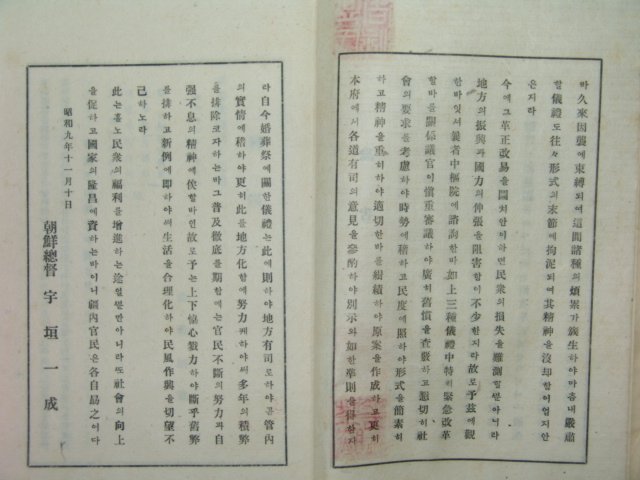 하久來因襲에束縛되여這間諸種의煩累가簇生하야마츰내嚴肅
할儀禮도往々形式의末節에拘泥되여其精神을沒却함이업지안
은지라
今에그革正改易을圖치안이하면民衆의損失을難測할뿐아니라
地方의振興과國力의伸張을阻害함이不少할지라故로予玆에觀
한바잇서曩者中樞院에諮詢한바如上三種儀禮中特히緊急改革
할바를關係議官이愼重審議하야廣히舊慣을查覈하고懇切히社
會의要求를考慮하야時勢에稽하고民度에照하야形式을簡素히
하고精神을重히하야適切한바를糾績하야原案을作成하고更히
本府에서各道有司의意見을參酌하야別示와如한準則을得한지
라自今婚葬祭에關한儀禮는此에則하야地方有司로하야곰管內
의實情에稽하야更히此를地方化함에努力케하야써多年의積弊
를排除코자하는바그普及徹底를期함에는官民不斷의努力과自
强不息의精神에俟할바인故로予는上下協心戮力하야斷乎舊弊
를排하고新例에即하야써生活을合理化하야民風作興을切望不
己하노라
此는홀노民衆의福利를增進하는途일뿐만아니라또社會의向上
을促하고國家의隆昌에資하는바이니疆內官民은各自勗之여다
昭和九年十一月十日
朝鮮總督 宇垣一成